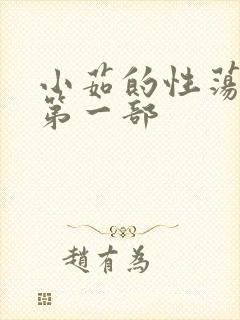 小茹的性荡
第一部
趙有為